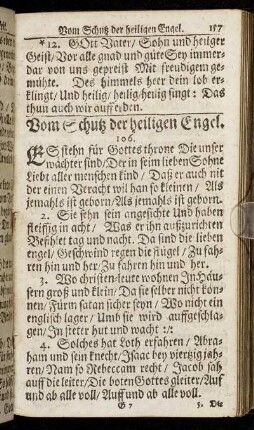 Vom Schutz der heiligen Engel. 157
* 12. GOtt Vater/ Sohn und heilger
Geist/ Vor alle gnad und güte Sey immer-
dar von uns gepreist Mit freudigem ge-
mühte. Des himmels heer dein lob er-
klingt/ Und heilig/ heilig/ heilig singt: Das
thun auch wir auff erden.
Vom Schutz der heiligen Engel.
106.
ES stehn für Gottes throne Die unser
wächter sind/ Der in seim lieben Sohne
Liebt aller menschen kind/ Daß er auch nit
der einen Veracht wil han so kleinen/ Als
jemahls ist geborn/ Als jemahls ist geborn.
2. Sie sehn sein angesichte Und haben
fleissig in acht/ Was er ihn außzurichten
Befihlet tag und nacht. Da sind die lieben
engel/ Geschwind regen die flügel/ Zu fah-
ren hin und her/ Zu fahren hin und her.
3. Wo christen-leute wohnen In Häu-
sern groß und klein/ Da sie selber nicht kön-
nen/ Fürm satan sicher seyn/ Wo nicht ein
englisch lager/ Umb sie wird auffgeschla-
gen/ In steter hut und wacht :/:
4. Solches hat Loth erfahren/ Abra-
ham und sein knecht/ Isaac bey viertzig jah-
ren/ Nam so Rebeccam recht/ Jacob sah
auff die leiter/ Die boten Gottes gleiter/ Auf
und ab alle voll/ Auff und ab alle voll.
G 7 5. Die